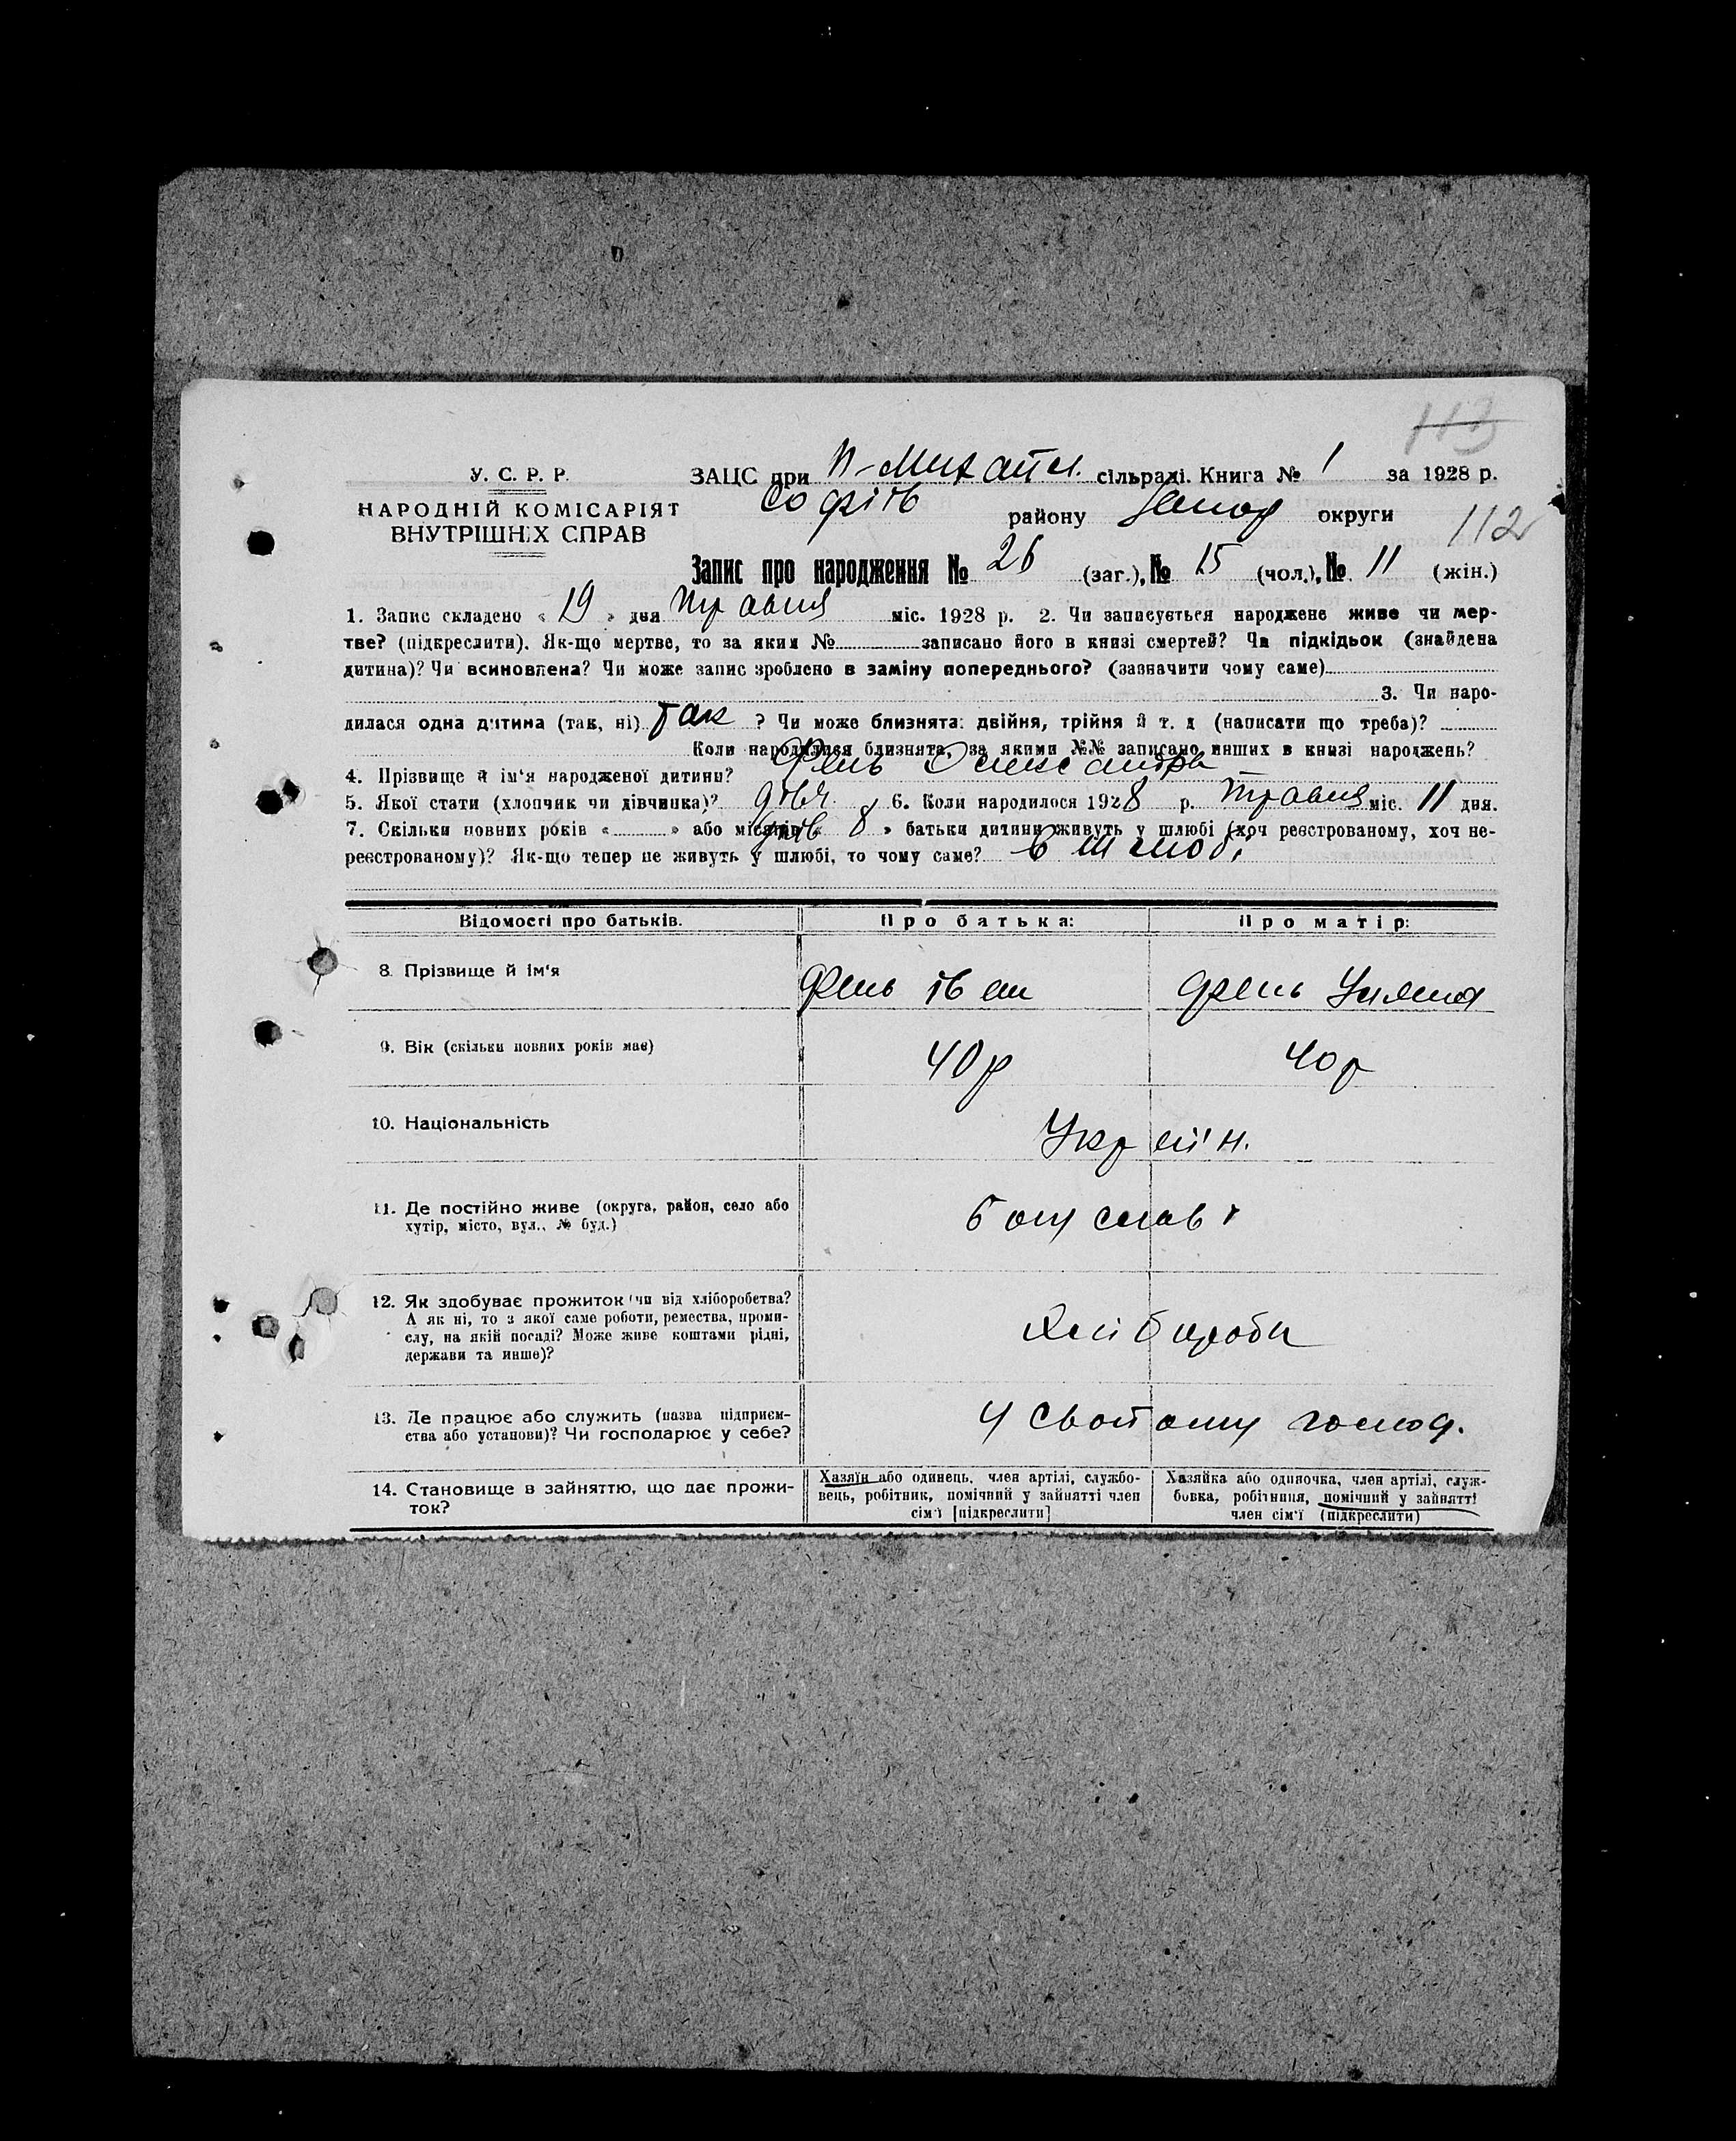 113
У. С. Р. Р.
НАРОДНІЙ КОМІСАРІЯТ
ВНУТРІШНІХ СПРАВ
ЗАЦС при Н-Михайл. сільраді. Книга № 1 за 1928 р.
Софіїв району Запор округи
112
Запис про народження № 26 (заг.), № 15 (чол.), № 11 (жін.)
1. Запис складено « 19 » дня травня міс. 1928 р. 2. Чи записується народжене живе чи мер-
тве? (підкреслити). Як-що мертве, то за яким № записано його в книзі смертей? Чи підкідьок (знайдена
дитина)? Чи всиновлена? Чи може запис зроблено в заміну попереднього? (зазначити чому саме)
3. Чи наро-
дилася одна дитина (так, ні) так ? Чи може близнята: двійня, трійня й т. д (написати що треба)?
Коли народилися близнята, за якими №№ записано инших в книзі народжень?
4. Прізвище й ім'я народженої дитини? Фень Олександра
5. Якої стати (хлопчик чи дівчинка)? дівч. 6. Коли народилося 1928 р. травня міс. 11 дня.
7. Скільки повних років « » або місяців « 8 » батьки дитини живуть у шлюбі (хоч реєстрованому, хоч не-
реєстрованому)? Як-що тепер не живуть у шлюбі, то чому саме? в шлюбі
Відомості про батьків. Про батька: Про матір:
8. Прізвище й ім'я Фень Іван Фень Уляна
9. Вік (скільки повних років має) 40 р 40 р
10. Національність Україн.
11. Де постійно живе (округа, район, село або
хутір, місто, вул., № буд.)
12. Як здобуває прожиток чи від хліборобства?
А як ні, то з якої саме роботи, ремества, проми-
слу, на якій посаді? Може живе коштами рідні,
держави та инше)?
Хлібороби
13. Де працює або служить (назва підприєм-
ства або установи)? Чи господарює у себе?
У свойому господ.
14. Становище в зайняттю, що дає прожи-
ток?
Хазяїн або одинець, член артілі, службо-
вець, робітник, помічний у зайнятті член
сім'ї [підкреслити]
Хазяйка або одиночка, член артілі, служ-
бовка, робітниця, помічний у зайнятті
член сім'ї (підкреслити)